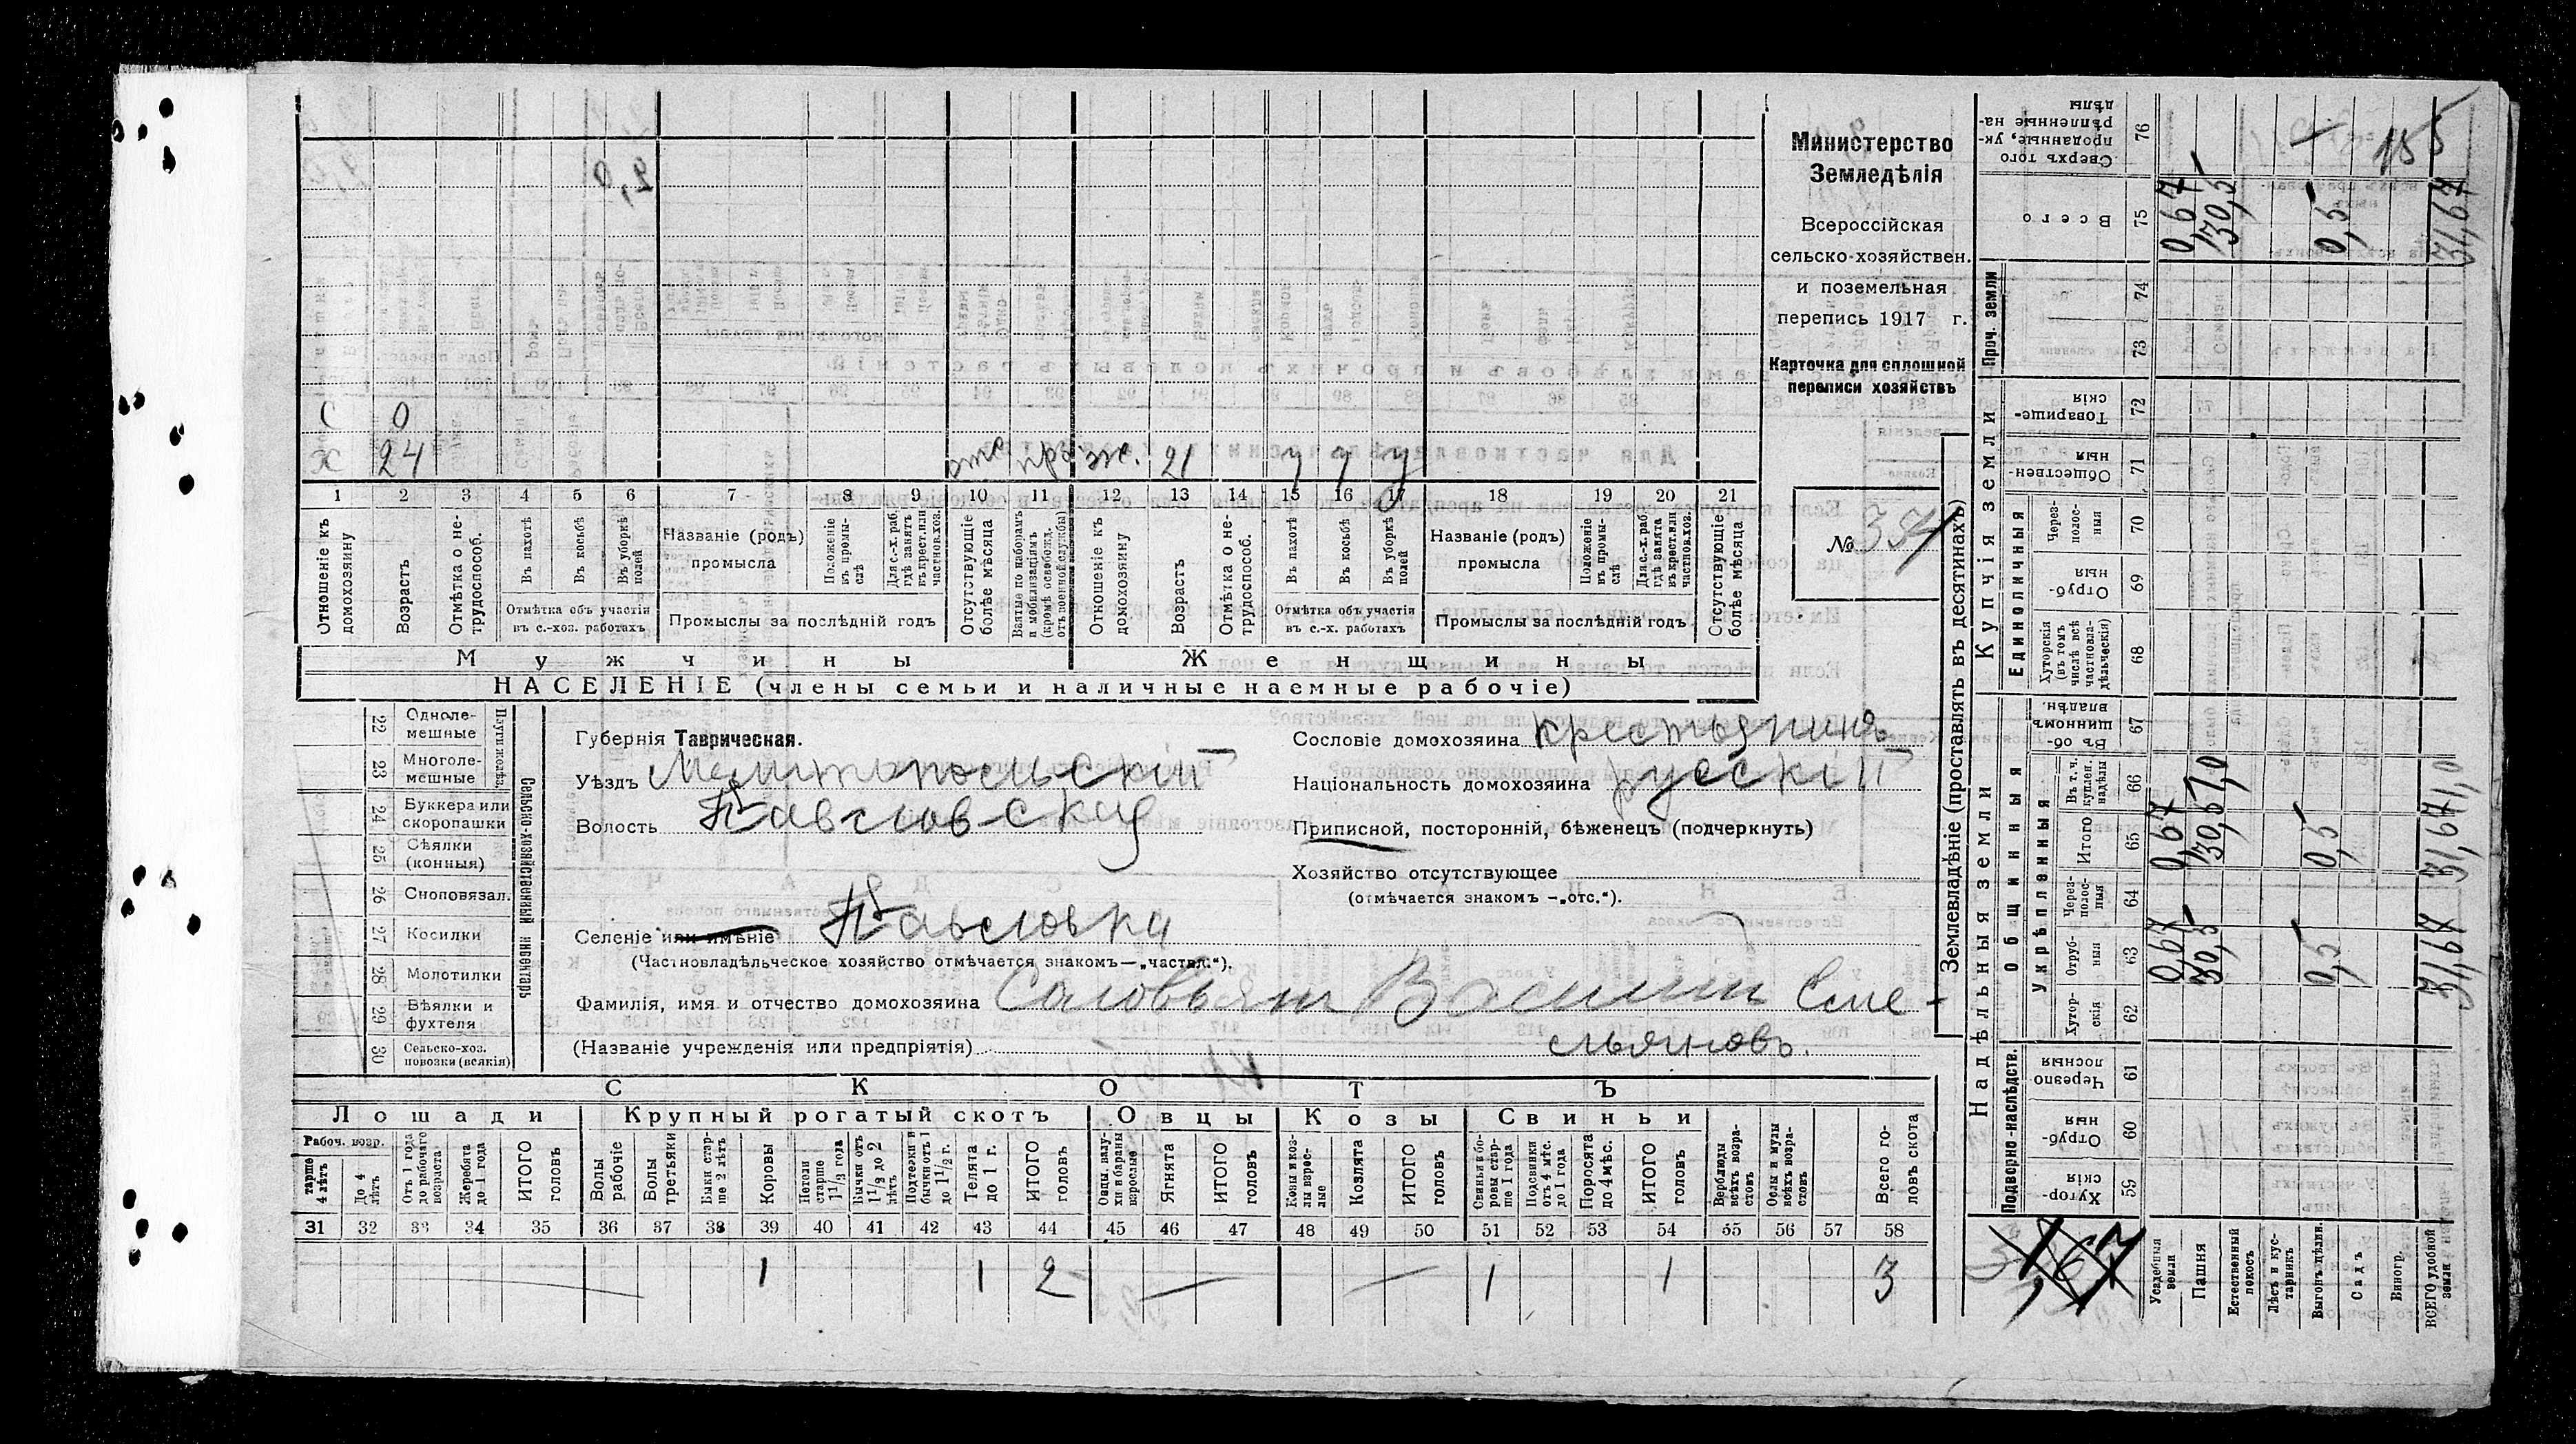 Министерство
Земледѣлія
Всероссійская
сельско-хозяйствен.
и поземельная
перепись 1917 г.
Карточка для сплошной
переписи хозяйствъ
№ 354
С 0
Х 24 отс. прз. ж. 21 у у у
1 2 3 4 5 6 7 8 9 10 11 12 13 14 15 16 17 18 19 20 21
Отношеніе къ домохозяину
Возрастъ
Отмѣтка о не-трудоспособ.
Въ пахотѣ
Въ косьбѣ
Въ уборкѣ полей
Отмѣтка объ участіи
въ с.-хоз. работахъ
Названіе (родъ)
промысла
Положеніе къ промы-слѣ
Для с.-х. раб. гдѣ занятъ въ крест. или частнов. хоз.
Промыслы за послѣдній годъ
Отсутствующіе болѣе мѣсяца
Взятые по наборамъ и мобилизаціямъ (кромѣ освобожд. отъ военной службы)
Отношеніе къ домохозяину
Возрастъ
Отмѣтка о не-трудоспособ.
Въ пахотѣ
Въ косьбѣ
Въ уборкѣ полей
Отмѣтка объ участіи
въ с.-х. работахъ
Названіе (родъ)
промысла
Положеніе въ промы-слѣ
Для с.-х. раб. гдѣ занята въ крест. или частнов. хоз.
Промыслы за послѣдній годъ
Отсутствующіе болѣе мѣсяца
Мужчины Женщины
НАСЕЛЕНІЕ (члены семьи и наличные наемные рабочіе)
22 Одноле-мешные
23 Многоле-мешные
24 Буккера или скоропашки
25 Сѣялки (конныя)
26 Сноповязал.
27 Косилки
28 Молотилки
29 Вѣялки и фухтеля
30 Сельско-хоз. повозки (всякія)
Сельско-хозяйственный инвентарь
Губернія Таврическая.
Уѣздъ Мелитопольскій
Волость Павловская
Селеніе или имѣніе Павловка
(Частновладѣльческое хозяйство отмѣчается знакомъ—„частвл.“).
Фамилія, имя и отчество домохозяина Соловьян Василий Еме-
(Названіе учрежденія или предпріятія) льяновъ.
Сословіе домохозяина крестьянинъ
Національность домохозяина русскій
Приписной, посторонній, бѣженецъ (подчеркнуть)
Хозяйство отсутствующее
(отмѣчается знакомъ —„отс.“).
СКОТЪ
Лошади Крупный рогатый скотъ Овцы Козы Свиньи
Рабоч. возр.
тарше 4 лѣтъ
До 4 лѣтъ
Отъ 1 года до рабочаго возраста
Жеребята до 1 года
ИТОГО головъ
Волы рабочіе
Волы третьяки
Быки стар-ше 2 лѣтъ
Коровы
Нетели старше 1 1/3 года
Бычки отъ 1 1/3 до 2 лѣтъ
Подтелки и бычки отъ 1 до 1 1/2 г.
Телята до 1 г.
ИТОГО головъ
Овцы, валу-хи и бараны взрослые
Ягнята
ИТОГО головъ
Козы и коз-лы взрос-лые
Козлята
ИТОГО головъ
Свиньи и бо-ровы стар-ше 1 года
Подсвинки отъ 4 мѣс. до 1 года
Поросята до 4 мѣс.
ИТОГО головъ
Верблюды всѣхъ возра-стовъ
Ослы и мулы всѣхъ возра-стовъ
Всего го-ловъ скота
31 32 33 34 35 36 37 38 39 40 41 42 43 44 45 46 47 48 49 50 51 52 53 54 55 56 57 58
1 1 2 — — 1 1 3
Землевладѣніе (проставлять въ десятинахъ)
Надѣльныя земли
Купчія земли
Проч. земли
Подворно-наслѣдств.
Общинныя
Укрѣпленныя
Единоличныя
Сверхъ того проданные, ук-рѣпленные на-дѣлы 76 155
Всего 75 0,67 30,5 0,5 31,67
74
73
Товарище-скія 72
Обществен-ныя 71
Через-полос-ныя 70
Отруб-ныя 69
Хуторскія (въ томъ числѣ всѣ частновла-дѣльческія) 68
Въ об-щинномъ владѣн. 67
Въ т. ч. куплен. надѣлы 66
Итого 65 0,67 0,5
Через-полос-ныя 64
Отруб-ныя 63 0,67 30,5 0,5 31,67
Хутор-скія 62
Черезпо-лосныя 61
Отруб-ныя 60
Хутор-скія 59
Усадебныя земли
Пашня
Естественный покосъ
Лѣсъ и кус-тарникъ
Выгонъ цѣлин.
Садъ
Виногр.
ВСЕГО удобной земли